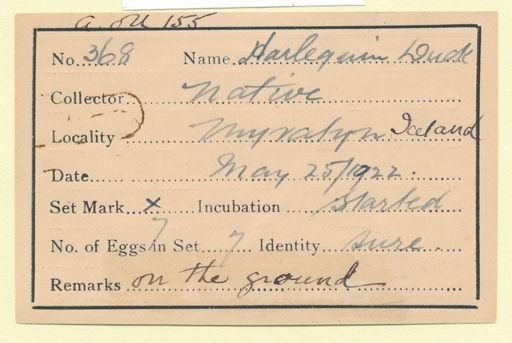 a. ou 155
No. 368 Name. Harlequin Duck
Collector Native
Locality Myvatyn Iceland
Date May 25/1922.
Set Mark x Incubation Started
No. of Eggs in Set 7 7 Identity Sure.
Remarks on the ground